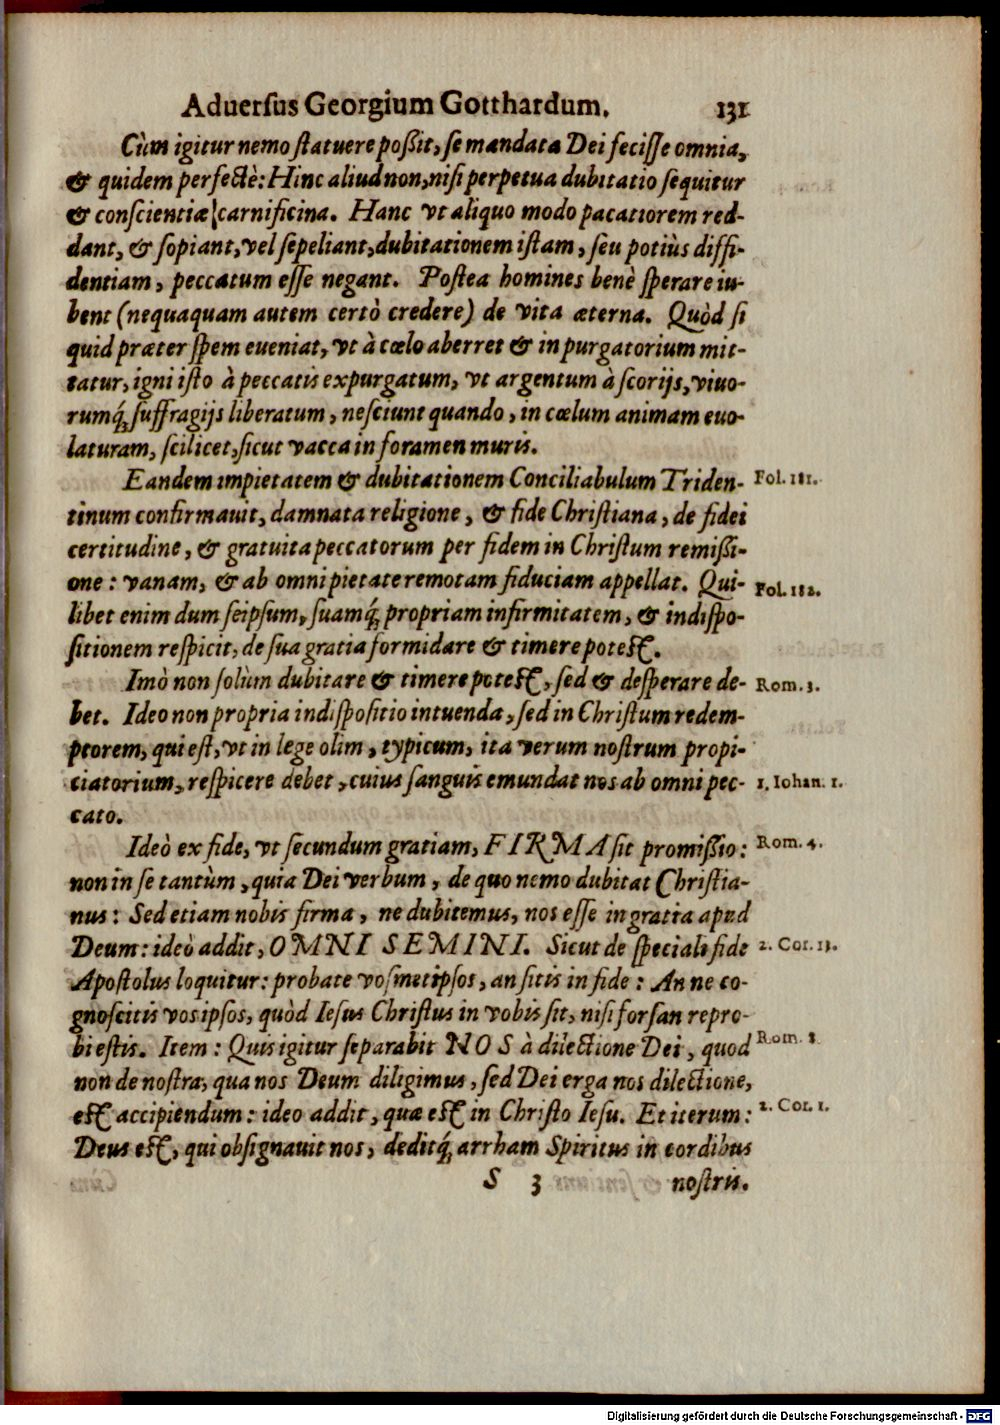 Aduerſus Georgium Gotthardum. 131
Cùm igitur nemo ſtatuere poßit, ſe mandata Dei feciſſe omnia,
& quidem perfectè: Hinc aliud non, niſi perpetua dubitatio ſequitur
& conſcientiæ carnificina. Hanc vt aliquo modo pacatiorem red-
dant, & ſopiant, vel ſepeliant, dubitationem iſtam, ſeu potiùs diffi-
dentiam, peccatum eſſe negant. Poſtea homines benè ſperare iu-
bent (nequaquam autem certò credere) de vita æterna. Quòd ſi
quid præter ſpem eueniat, vt à cœlo aberret & in purgatorium mit-
tatur, igni iſto à peccatis expurgatum, vt argentum à ſcorijs, viuo-
rumq́; ſuffragijs liberatum, neſciunt quando, in cœlum animam euo-
laturam, ſcilicet, ſicut vacca in foramen muris.
Eandem impietatem & dubitationem Conciliabulum Triden- Fol. 181.
tinum confirmauit, damnata religione, & fide Chriſtiana, de fidei
certitudine, & gratuita peccatorum per fidem in Chriſtum remißi-
one: vanam, & ab omni pietate remotam fiduciam appellat. Qui- Fol. 182.
libet enim dum ſeipſum, ſuamq́; propriam infirmitatem, & indiſpo-
ſitionem reſpicit, de ſua gratia formidare & timere poteſt.
Imò non ſolùm dubitare & timere poteſt, ſed & deſperare de- Rom. 3.
bet. Ideo non propria indiſpoſitio intuenda, ſed in Chriſtum redem-
ptorem, qui eſt, vt in lege olim, typicum, ita verum noſtrum propi-
ciatorium, reſpicere debet, cuius ſanguis emundat nos ab omni pec- 1. Iohan. 1.
cato.
Ideò ex fide, vt ſecundum gratiam, FIRMA ſit promißio: Rom. 4.
non in ſe tantùm, quia Dei verbum, de quo nemo dubitat Chriſtia-
nus: Sed etiam nobis firma, ne dubitemus, nos eſſe in gratia apud
Deum: ideò addit, OMNI SEMINI. Sicut de ſpeciali fide 2. Cor. 13.
Apoſtolus loquitur: probate voſmetipſos, an ſitis in fide: An ne co-
gnoſcitis vos ipſos, quòd Ieſus Chriſtus in vobis ſit, niſi forſan repro-
bi eſtis. Item: Quis igitur ſeparabit NOS à dilectione Dei, quod Rom. 8.
non de noſtra, qua nos Deum diligimus, ſed Dei erga nos dilectione,
eſt accipiendum: ideo addit, quæ eſt in Chriſto Ieſu. Et iterum: 2. Cor. 1.
Deus eſt, qui obſignauit nos, deditq́; arrham Spiritus in cordibus
S 3 noſtris.
Digitalisierung gefördert durch die Deutsche Forschungsgemeinschaft - DFG